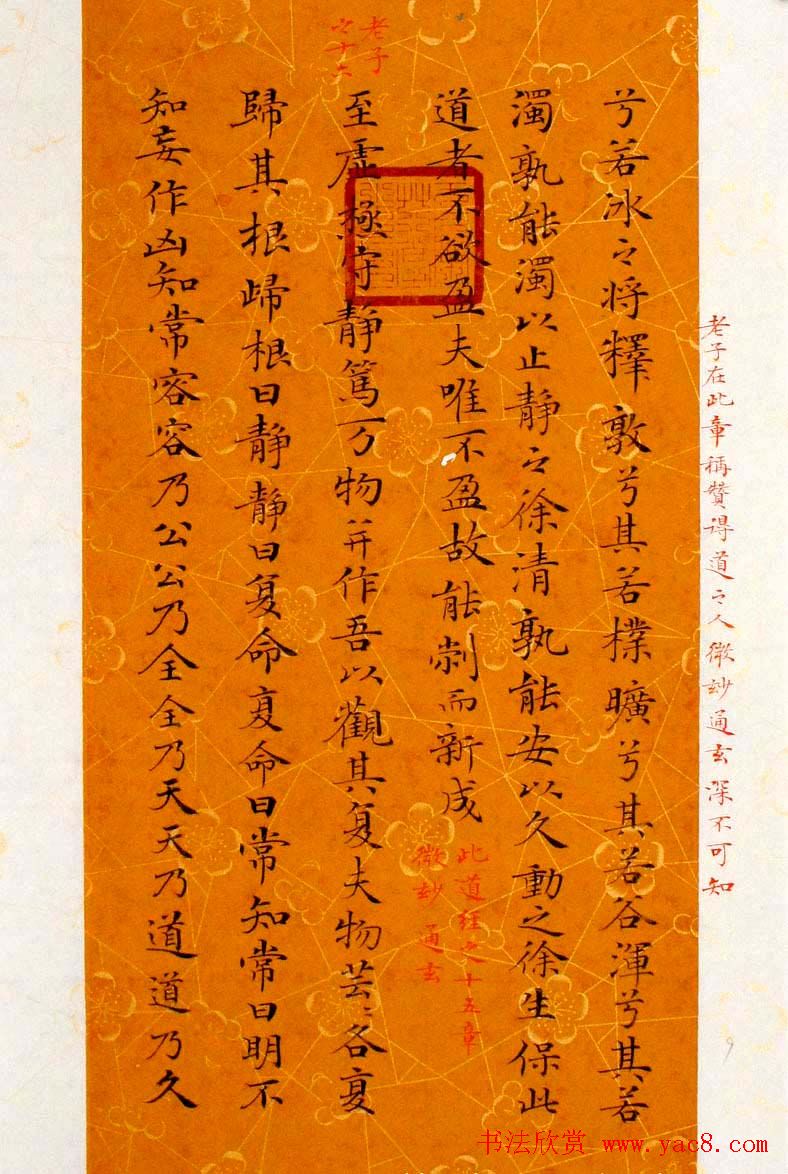 老子在此章稱贊得道之人微妙通玄深不可知
兮若冰之将釋敦兮其若樸曠兮其若谷渾兮其若
濁孰能濁以止靜之徐清孰能安以久動之徐生保此
道者不欲盈夫唯不盈故能
而新成
此道经之十五章
微妙通玄
老子
之十六
至虚極守静篤万物並作吾以觀其复夫物芸〻各复
歸其根歸根曰静静曰复命复命曰常知常曰明不
知妄作凶知常容容乃公公乃全全乃天天乃道道乃久
9
书法欣赏 www.yac8.com